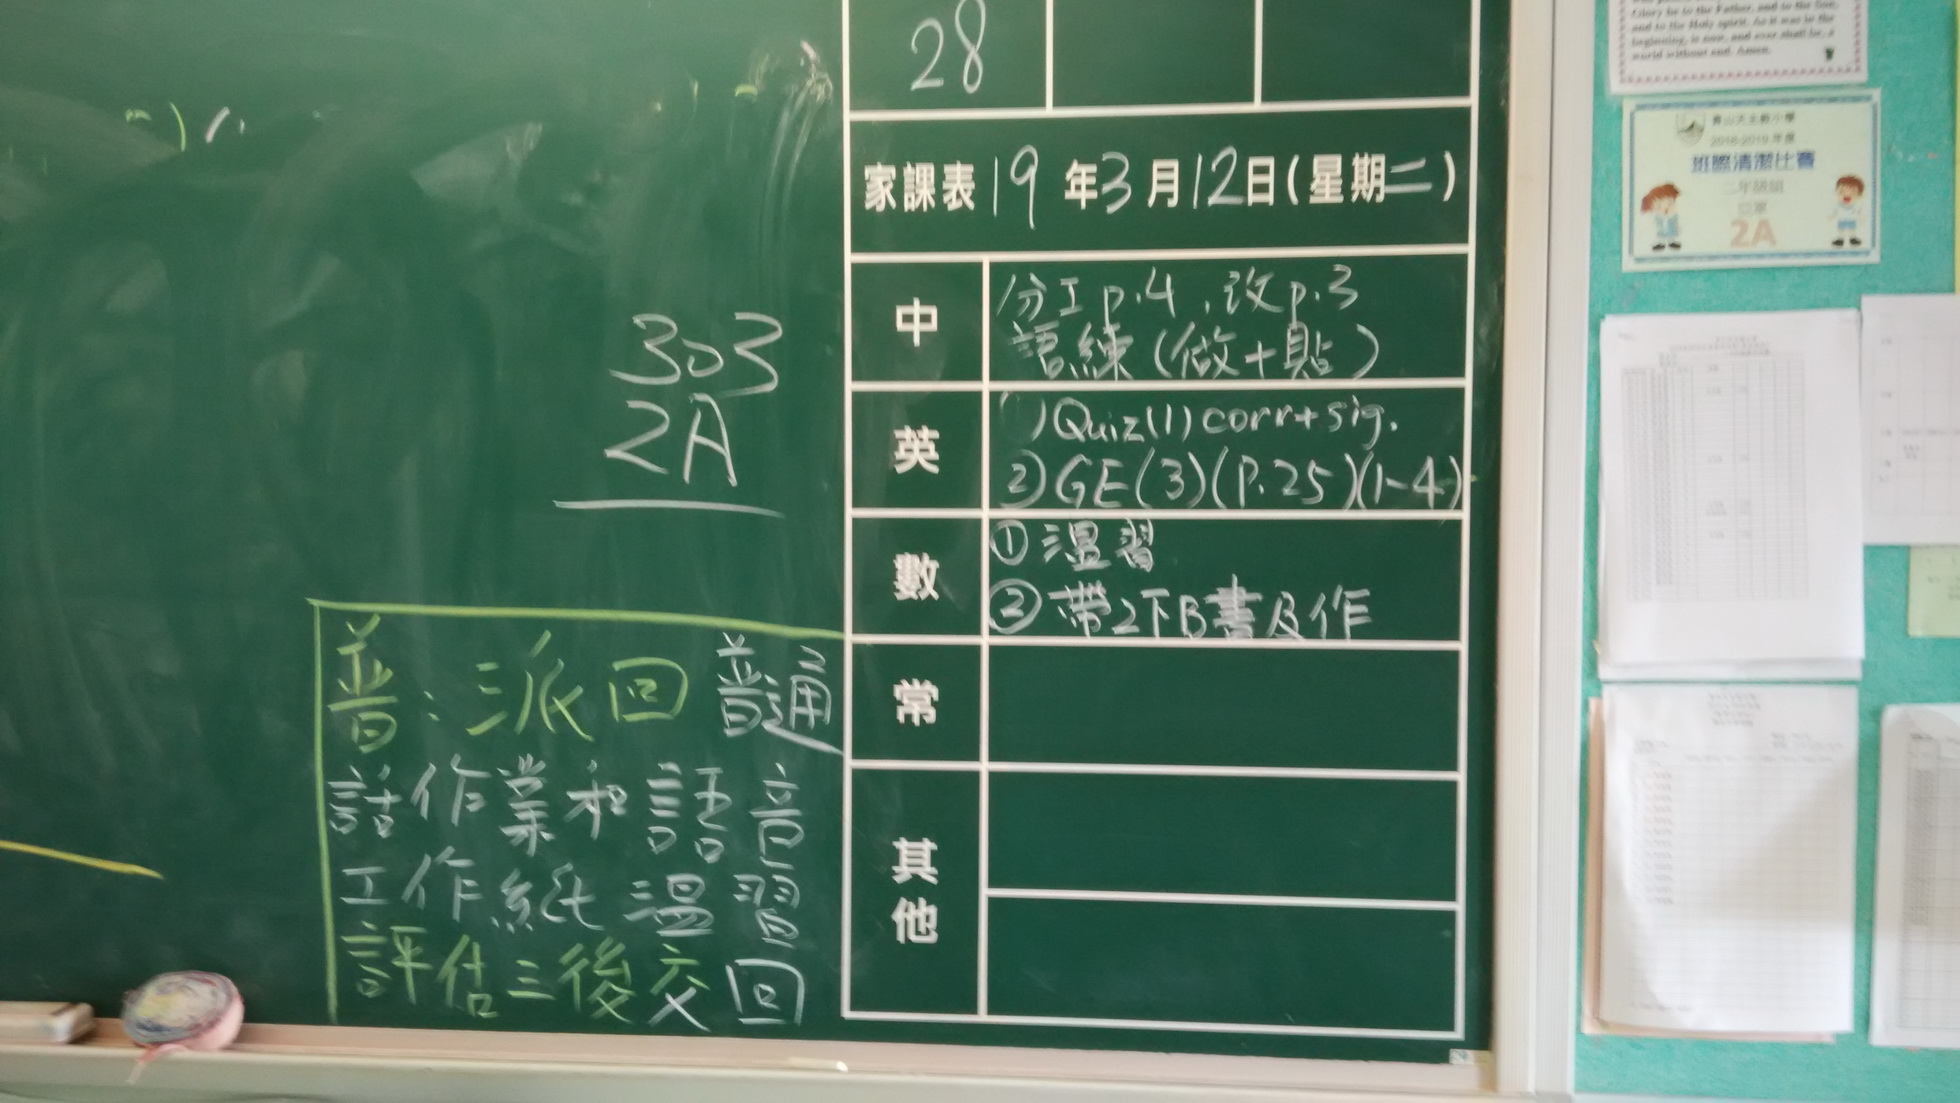 28
家課表19年3月12日(星期二)
中
分工p.4、改p.3
語練(做+貼)
英
1)Quiz(1)corr+sig.
2)GE(3)(P.25)(1-4)
數
①溫習
②帶2下B書及作
常
其他
303
2A
普:派回普通
話作業和語音
工作紙溫習
評估三後交回
Glory be to the Father, and to the Son,
and to the Holy spirit. As it was in the
beginning, is now, and ever shall be, a
world without end. Amen.
青山天主教小學
2018-2019年度
班際清潔比賽
二年級組
冠軍
2A